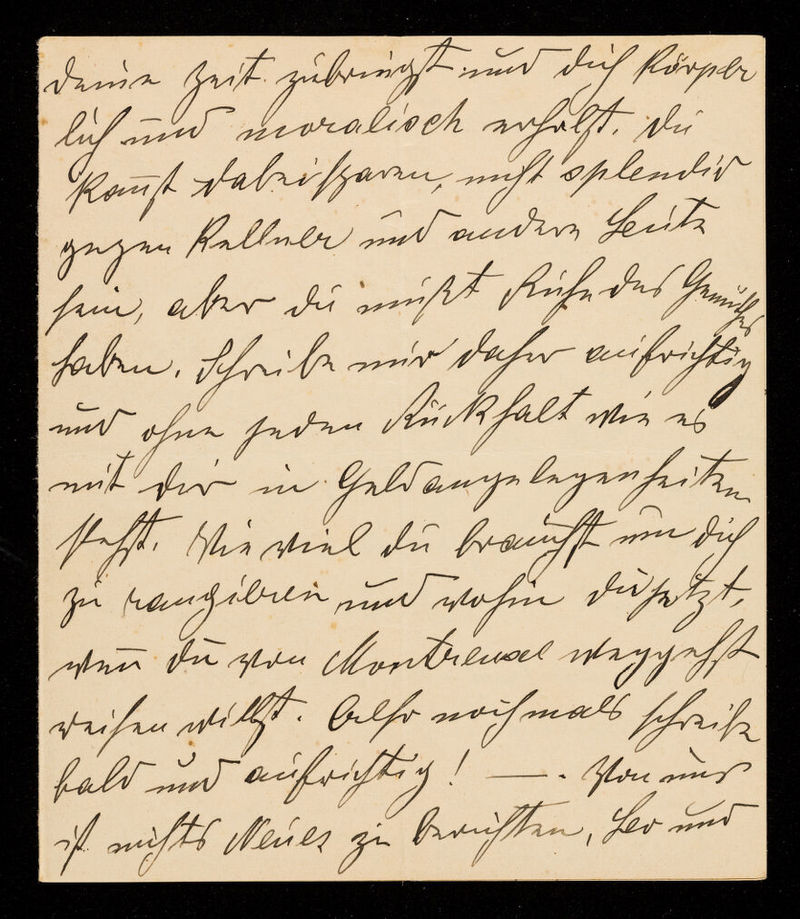 deine Zeit zubringst und dich körper
lich und moralisch erholst. Du
kannst dabei sparen, nicht splendid
gegen Kellner und andere Leute
sein, aber du mußt Ruhe des Gemüthes
haben. Schreibe mir daher aufrichtig
und ohne jeden Rückhalt wie es
mit dir in Geldangelegenheiten
steht. Wie viel du brauchst um dich
zu rangiren und wohin du jetzt,
wenn du von Montreux weggehst
reisen willst. Also nochmals schreibe
bald und aufrichtig! —. Von uns
ist nichts Neues zu berichten, Leo und